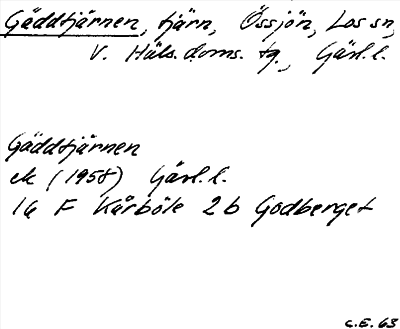 Gäddtjärnen, tjärn, Össjön, Los sn,
V. Häls. doms. tg., Gävl. l.
Gäddtjärnen
ek (1958) Gävl. l.
16 F Kårböle 2b Godberget
C.E. 63